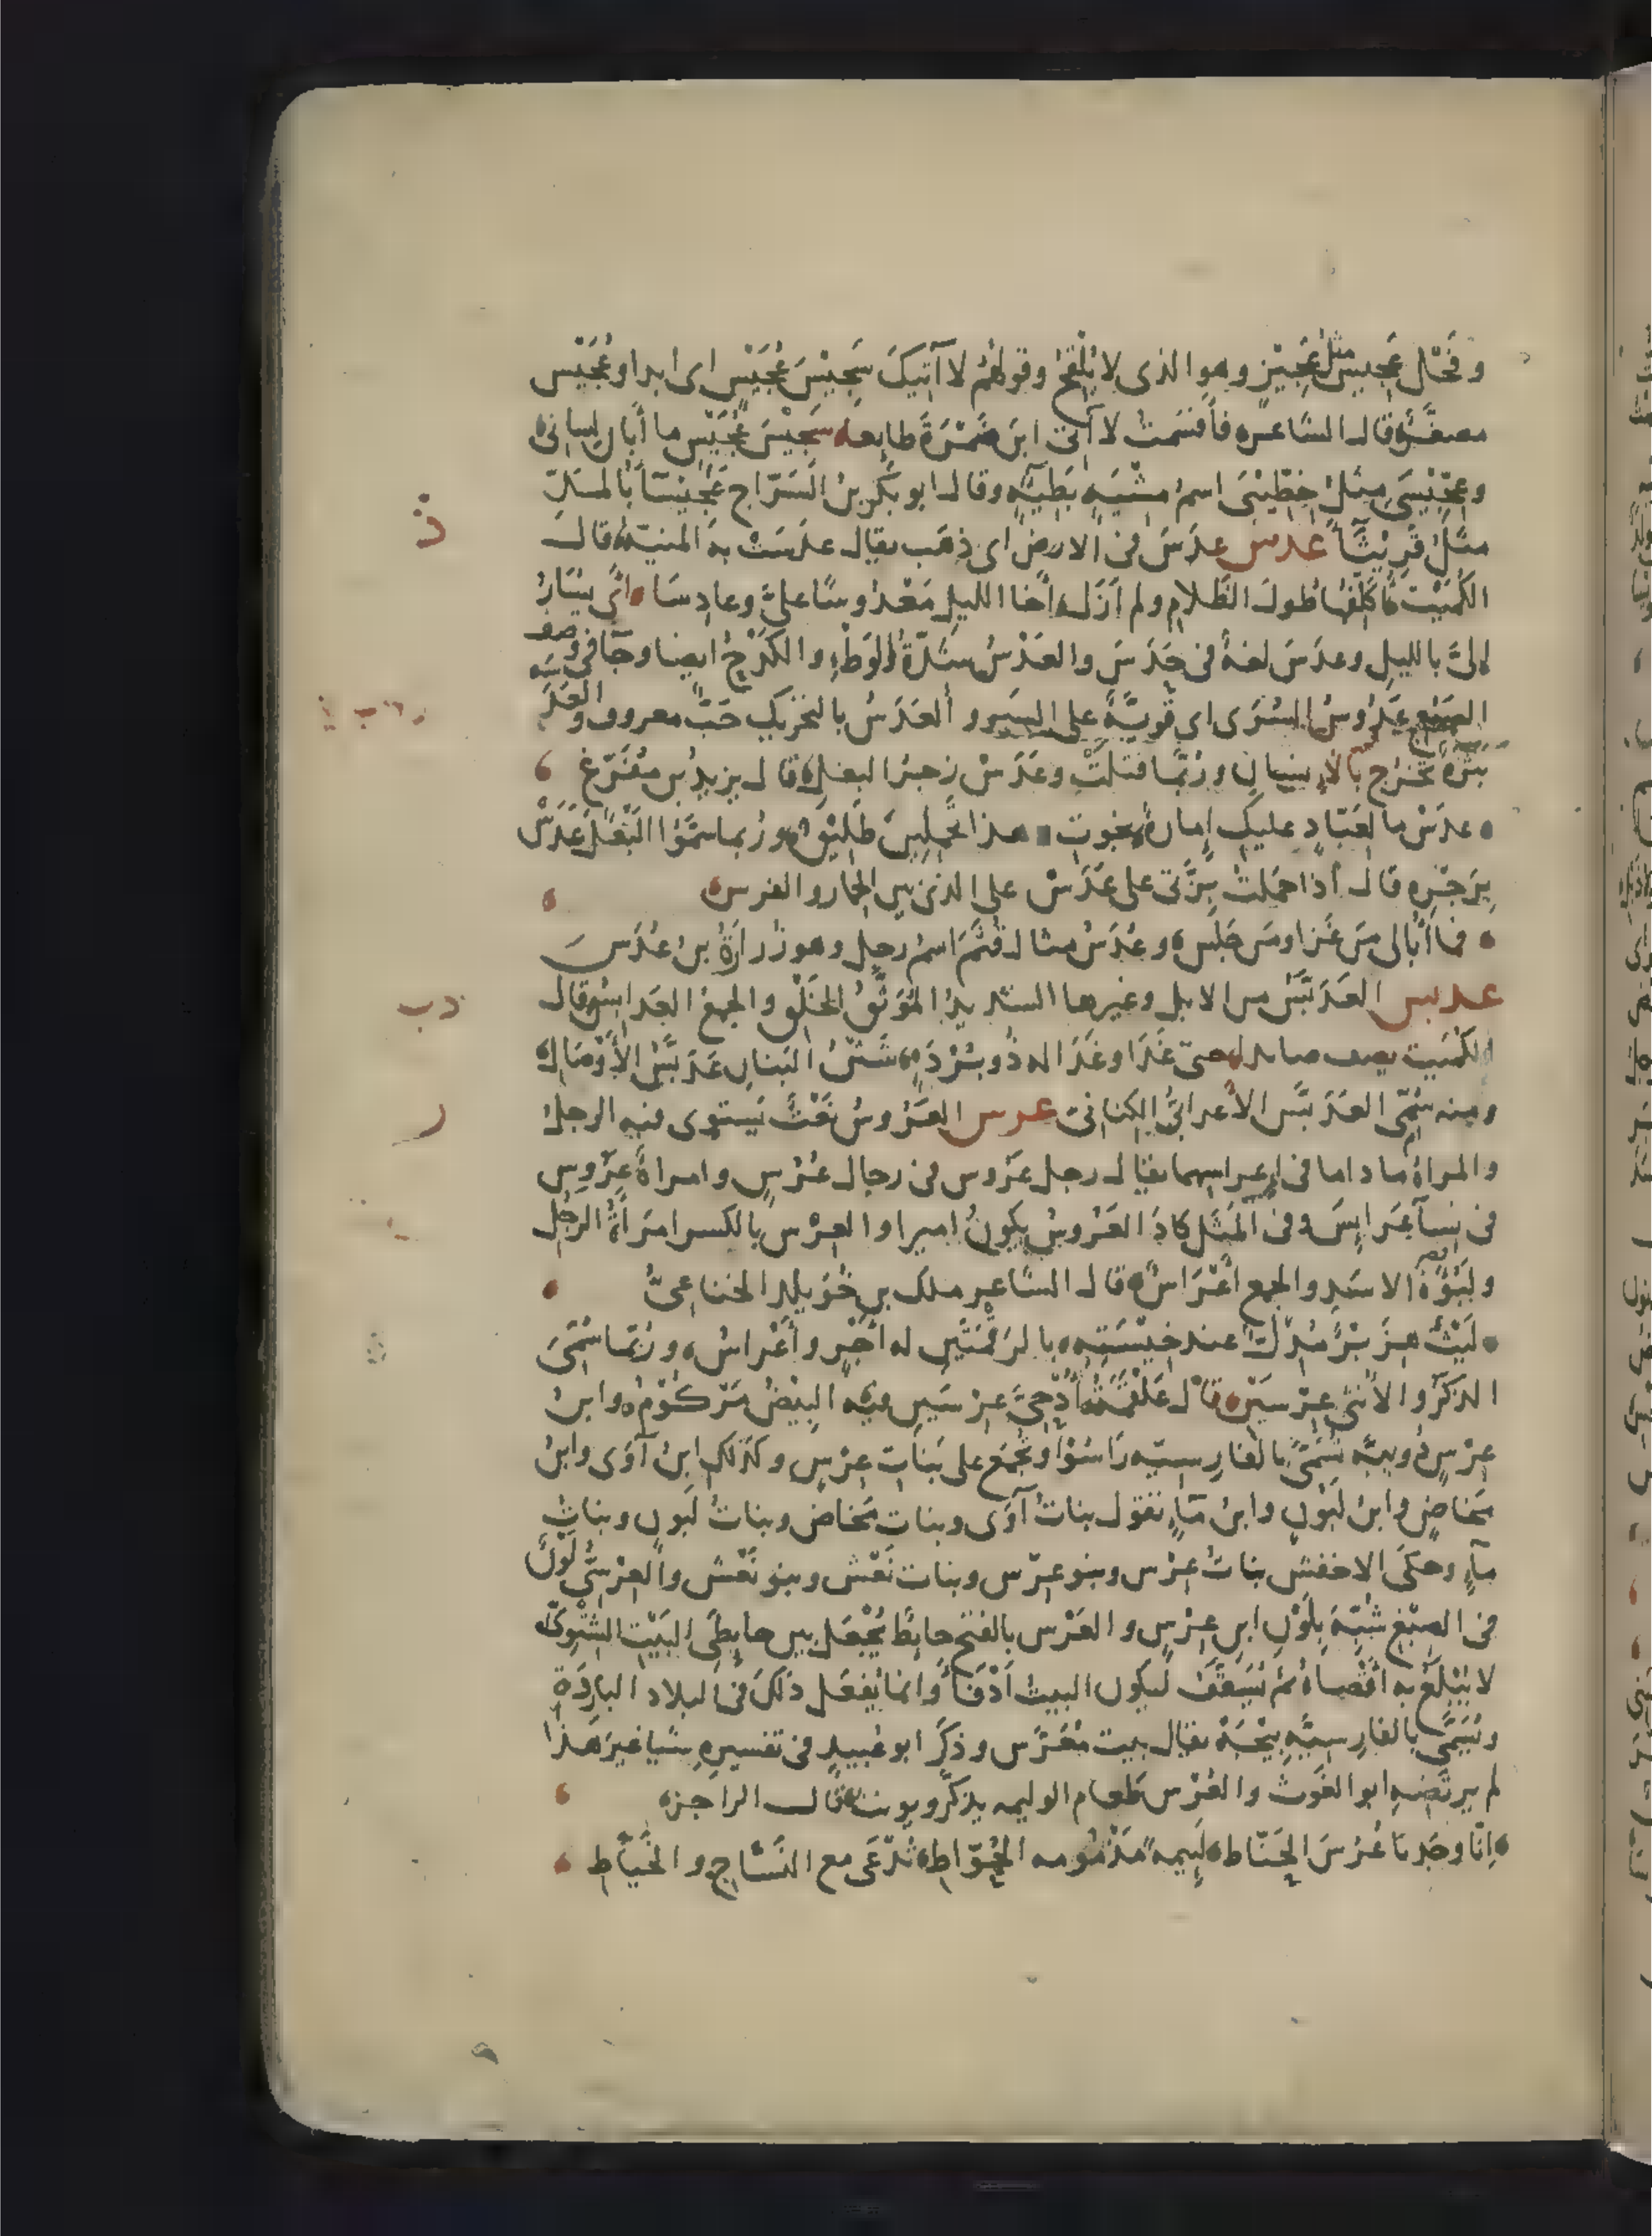 وفحل عجيس مثل عجيز وهو الذى لا يلقح وقولهم لا آتيك سجيس عجيس اى ابدا وعجيس
مصغّر قال الشاعر فأقسمت لا آتى ابن ضمرة طايعا سجيس عجيس ما أبان لسانى
وعجّيسى مثل خطّيبى اسم مشية بطيئة وقال ابو بكر بن السّرّاج عجيساء بالمدّ
مثل قريثاء عدس عدس فى الارض اى ذهب يقال عدست به المنيّة قال
الكميت أكلّفها طول الظلام ولم ازل أخا الليل معدوسا علىّ وعادسا اى يسار
إلىّ بالليل وعدس لغة فى حدس والعدس شدّة الوطء والكدح ايضا وجآ فى وصف
الضبع عدوس السّرى اى قويّة على السير و العدس بالتحريك حبّ معروف والعدسه
بثرة تخرج بالإنسان وربّما قتلت وعدس زجر البغل قال يزيد بن مفرّغ
عدس ما لعبّاد عليك إمارة نجوت وهذا تحملين طليق وربما سمّوا البغل عدس
بزجره قال اذا حملت بزّتى على عدس على الذى بين الحمار والفرس
فما أبالى من غزا ومن جلس وعدس مثال قثم اسم رجل وهو زرارة بن عدس
عدبس العدبّس من الابل وغيرها الشديد الموثّق الخلق والجمع العدابس قال
الكميت يصف صايدا حتى غدا وغدا له ذو بردة شثن البنان عدبّس الأوصال
ومنه سمّى العدبّس الأعرابىّ الكنانىّ عرس العروس نعت يستوى فيه الرجل
والمراة ما داما فى إعراسهما يقال رجل عروس فى رجال عرس وامراة عروس
فى نسآ عرايس وفى المثل كاد العروس يكون اميرا والعرس بالكسر امرأة الرجل
ولبؤة الاسد والجمع أعراس قال الشاعر ملك بن خويلد الخناعىّ
ليث هزبر مدلّ عند خيسته بالرقمتين له أجر وأعراس وربّما سمّى
الذكر والانثى عرسين قال علقمة أدحىّ عرسين فيه البيض مركوم وابن
عرس دويبّه تسمّى بالفارسيّه راسو وتجمع على بنات عرس وكذلك ابن آوى وابن
مخاض وابن لبون وابن مآء تقول بنات آوى وبنات مخاض وبنات لبون وبنات
مآء وحكى الاخفش بنات عرس وبنو عرس وبنات نعش وبنو نعش والعرسىّ لون
فى الصبغ شبّه بلون ابن عرس والعرس بالفتح حايط يجعل بين حايطى البيت الشتوىّ
لا يبلغ به اقصاه ثم يسقّف ليكون البيت ادفأ وانما يفعل ذلك فى البلاد الباردة
ويسمّى بالفارسيّه بيجه يقال بيت معرّس وذكر ابو عبيد فى تفسيره شيا غير هذا
لم يرتضه ابو الغوث والعرس طعام الوليمه يذكّر ويونث قال الراجز
إنّا وجدنا عرس الحنّاط لئيمه مذمومه الحوّاط تدعى مع النسّاج والخيّاط